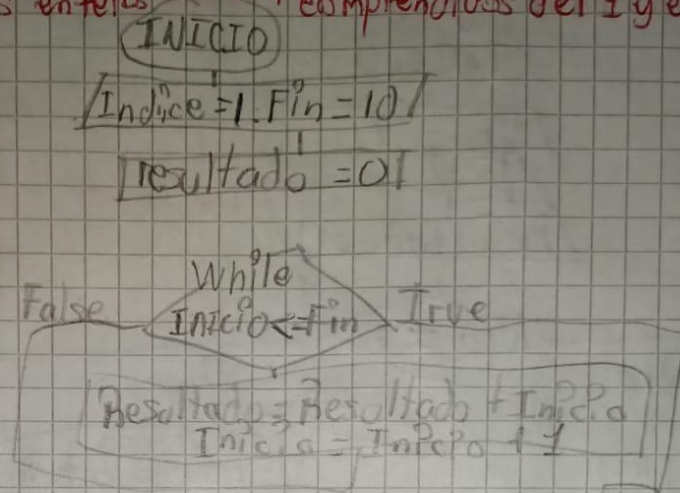 comprendidos del 1 y e
INICIO
Indice=1. Fin=10
resultado=0
While
False Inicio<=Fin True
Resultado=Resultado+Inicio
Inicio=Inicio+1